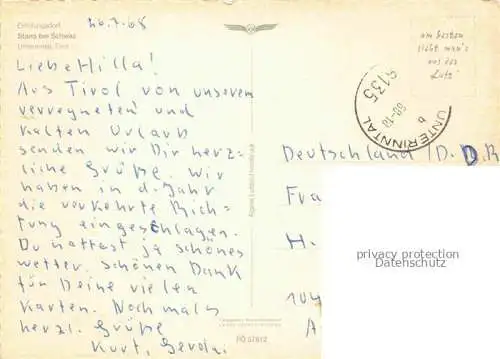 26.7.68
Erholungsdorf
Stans bei Schwaz
Unterinntal, Tirol
Liebe Hilla!
Aus Tirol von unserem
verregneten und
kalten Urlaub
senden wir Dir herz-
liche Grüße. Wir
haben in d. Jahr
die verkehrte Rich-
tung eingeschlagen.
Du hattest ja schönes
wetter. schönen Dank
für Deine vielen
Karten. Nochmals
herzl. Grüße
Kurt, Gerda.
FÖ 57812
am besten
sieht man's
aus der
Luft!
6135
UNTERINNTAL
b
Deutschland/D.D.R
Fra
H.
104
A
privacy protection
Datenschutz